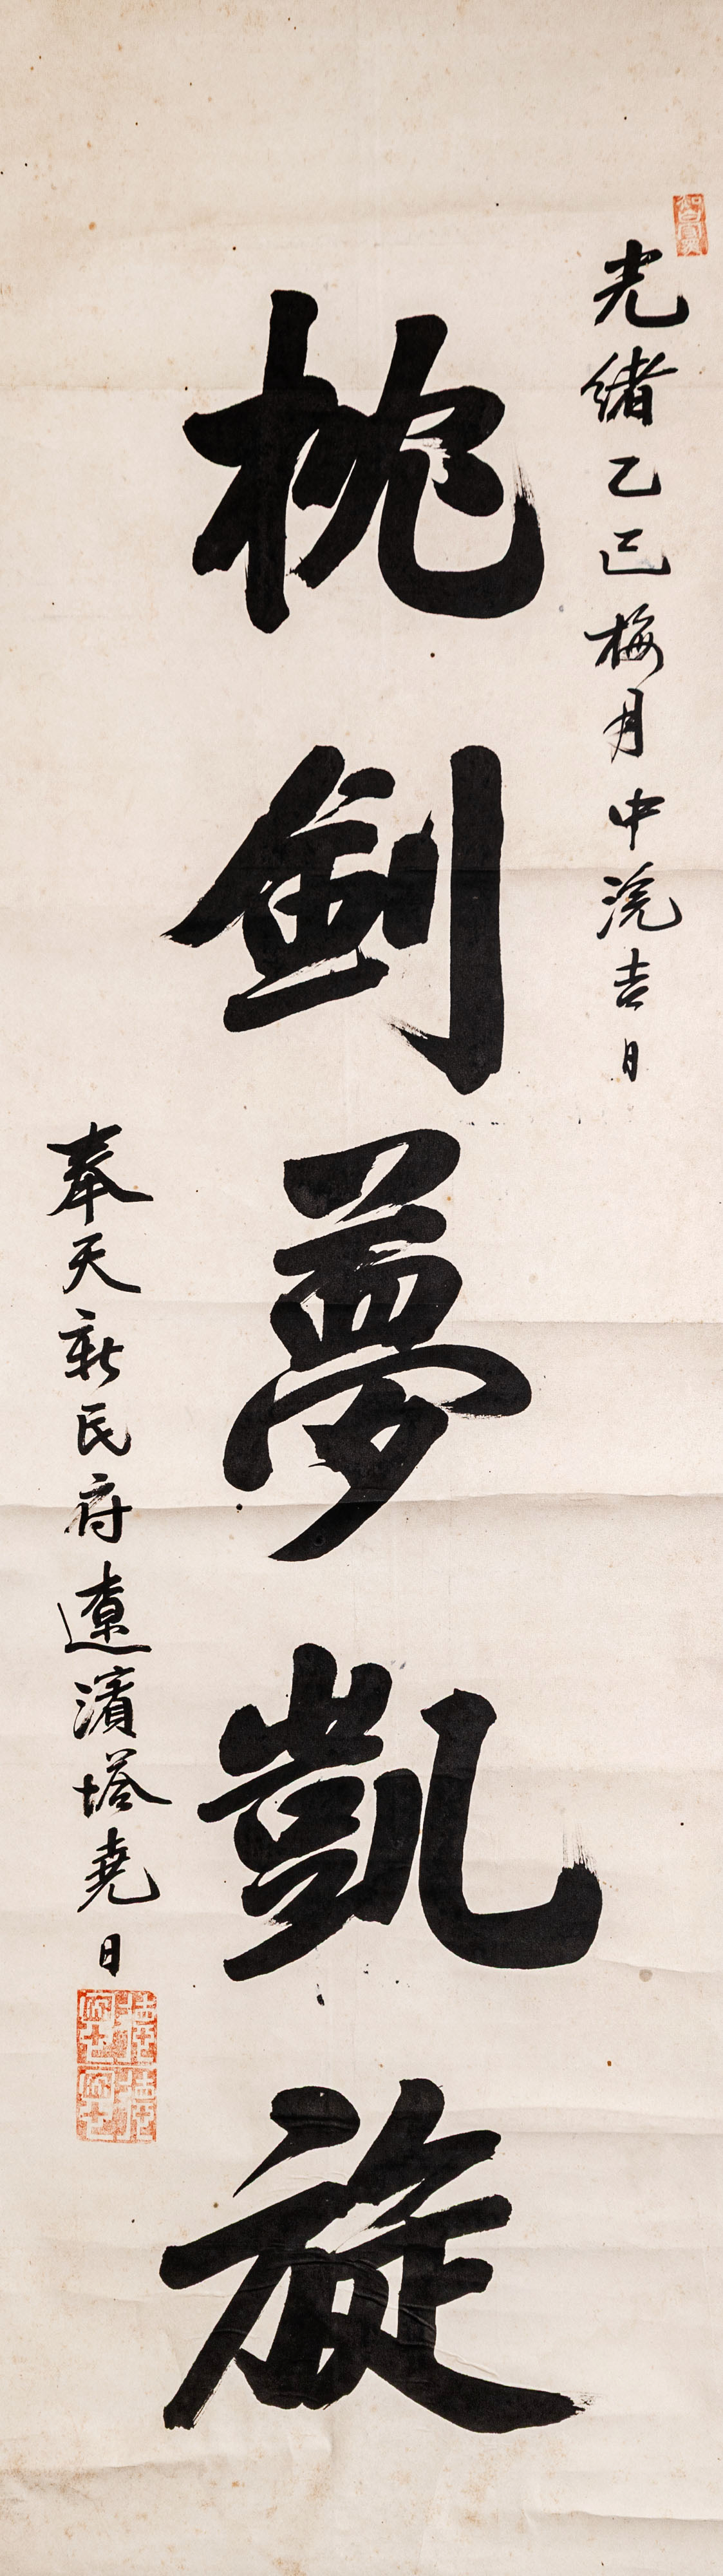 光緒乙巳梅月中浣吉日
枕劍夢凱旋
奉天新民府遼濱塔堯日